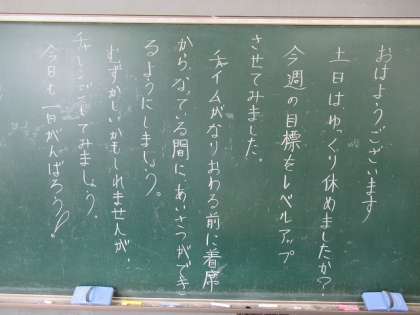 おはようございます
土日はゆっくり休めましたか？
今週の目標をレベルアップ
させてみました。
チャイムがなりおわる前に着席
からなっている間に、あいさつができ
るようにしましょう。
むずかしいかもしれませんが、
チャレンジしてみましょう。
今日も一日がんばろう！！